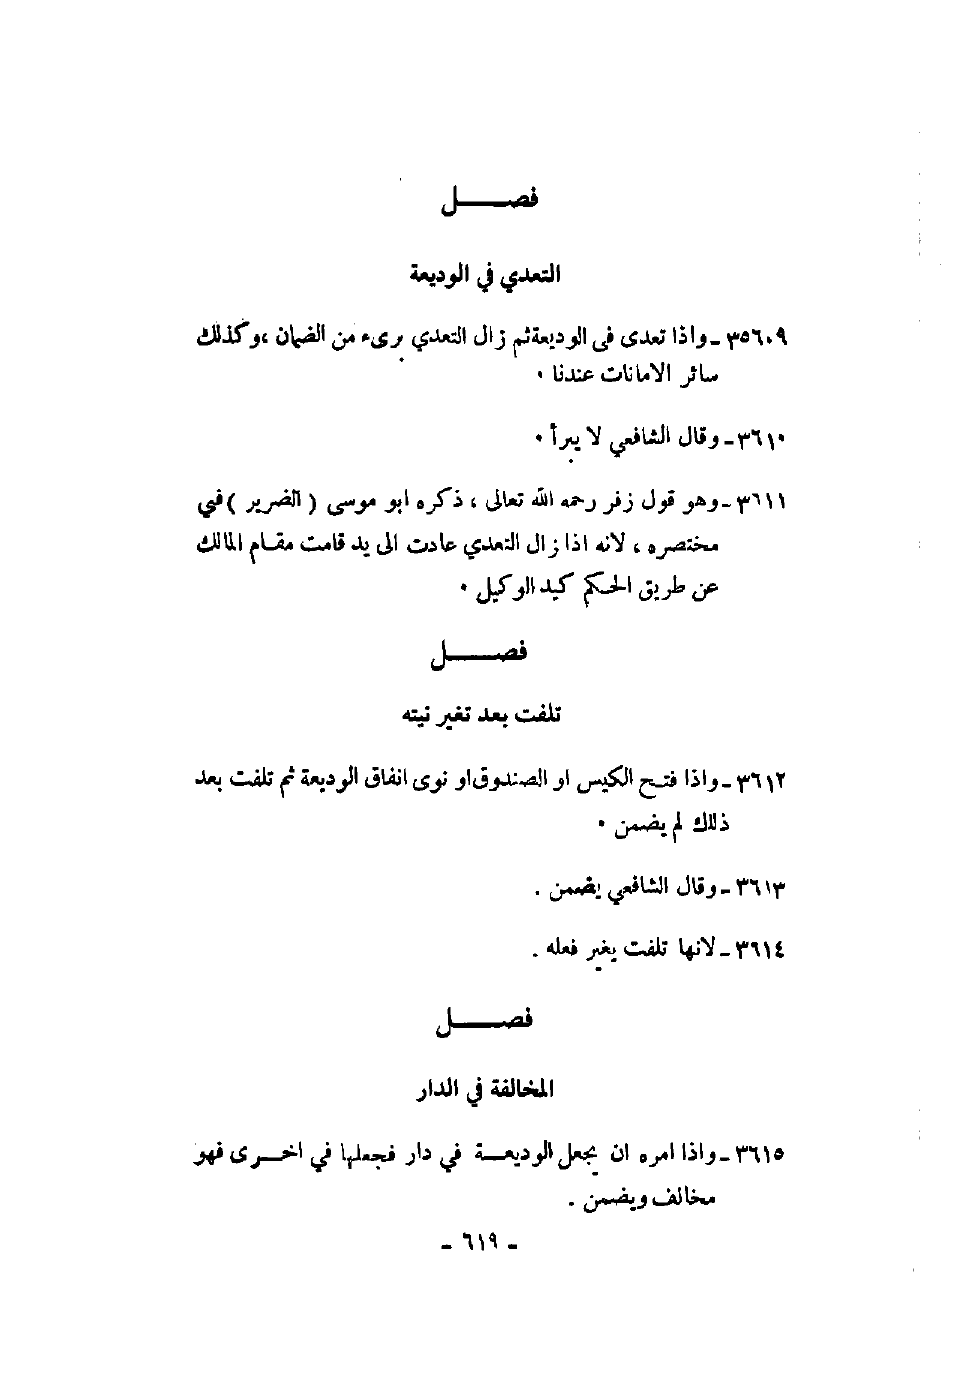 فصـــــل
التعدي في الوديعة
٣٥٦٠٩ ـ واذا تعدى فى الوديعة ثم زال التعدي برىء من الضمان ، وكذلك
سائر الامانات عندنا ٠
٣٦١٠ ـ وقال الشافعي لا يبرأ ٠
٣٦١١ ـ وهو قول زفر رحمه الله تعالى ، ذكره ابو موسى ( الضرير ) في
مختصره ، لانه اذا زال التعدي عادت الى يد قامت مقـام المالك
عن طريق الحكم كيد الوكيل ٠
فصـــــل
تلفت بعد تغير نيته
٣٦١٢ ـ واذا فتـح الكيس او الصندوق او نوى انفاق الوديعة ثم تلفت بعد
ذلك لم يضمن ٠
٣٦١٣ ـ وقال الشافعي يضمن .
٣٦١٤ ـ لانها تلفت بغير فعله .
فصـــــل
المخالفة في الدار
٣٦١٥ ـ واذا امره ان يجعل الوديعـــة في دار فجعلها في اخـــرى فهو
مخالف ويضمن .
ـ ٦١٩ ـ